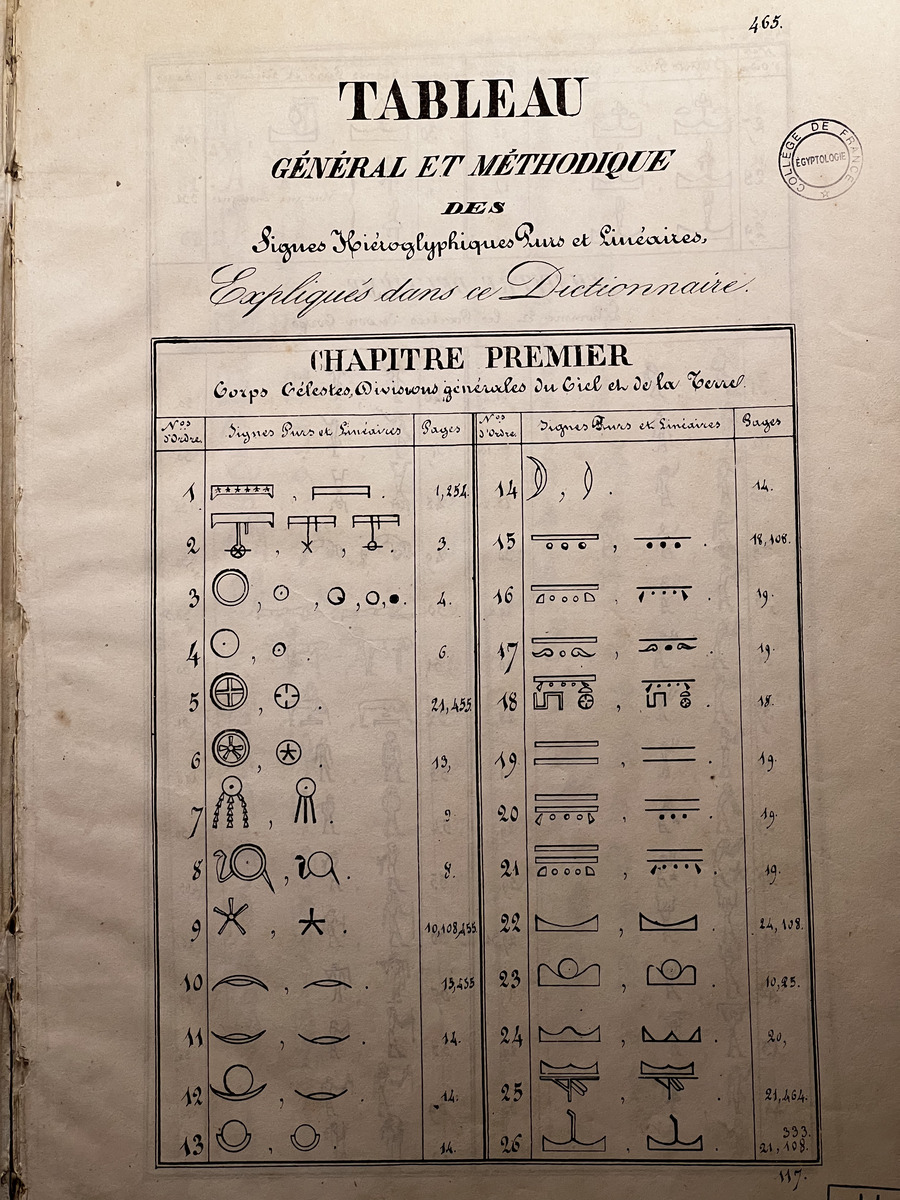 465.
TABLEAU
GÉNÉRAL ET MÉTHODIQUE
DES
Signes Hiéroglyphiques Purs et Linéaires,
Expliqués dans ce Dictionnaire.
COLLÈGE DE FRANCE
ÉGYPTOLOGIE
CHAPITRE PREMIER
Corps Célestes, Divisions générales du Ciel et de la Terre.
Nos d'Ordre. Signes Purs et Linéaires Pages Nos d'Ordre. Signes Purs et Linéaires Pages
1 , . 1, 254. 14 , . 14.
2 , , . 3. 15 , . 18, 108.
3 , , , . 4. 16 , . 19.
4 , . 6. 17 , . 19.
5 , . 21, 455. 18 , . 18.
6 , . 13, 19 , . 19.
7 , . 9. 20 , . 19.
8 , . 8. 21 , . 19.
9 , . 10, 108, 455. 22 , . 24, 108.
10 , . 13, 455 23 , . 10, 25.
11 , . 14. 24 , . 20,
12 , . 14. 25 , . 21, 464.
13 , . 14. 26 , . 333. 21, 108.
117.